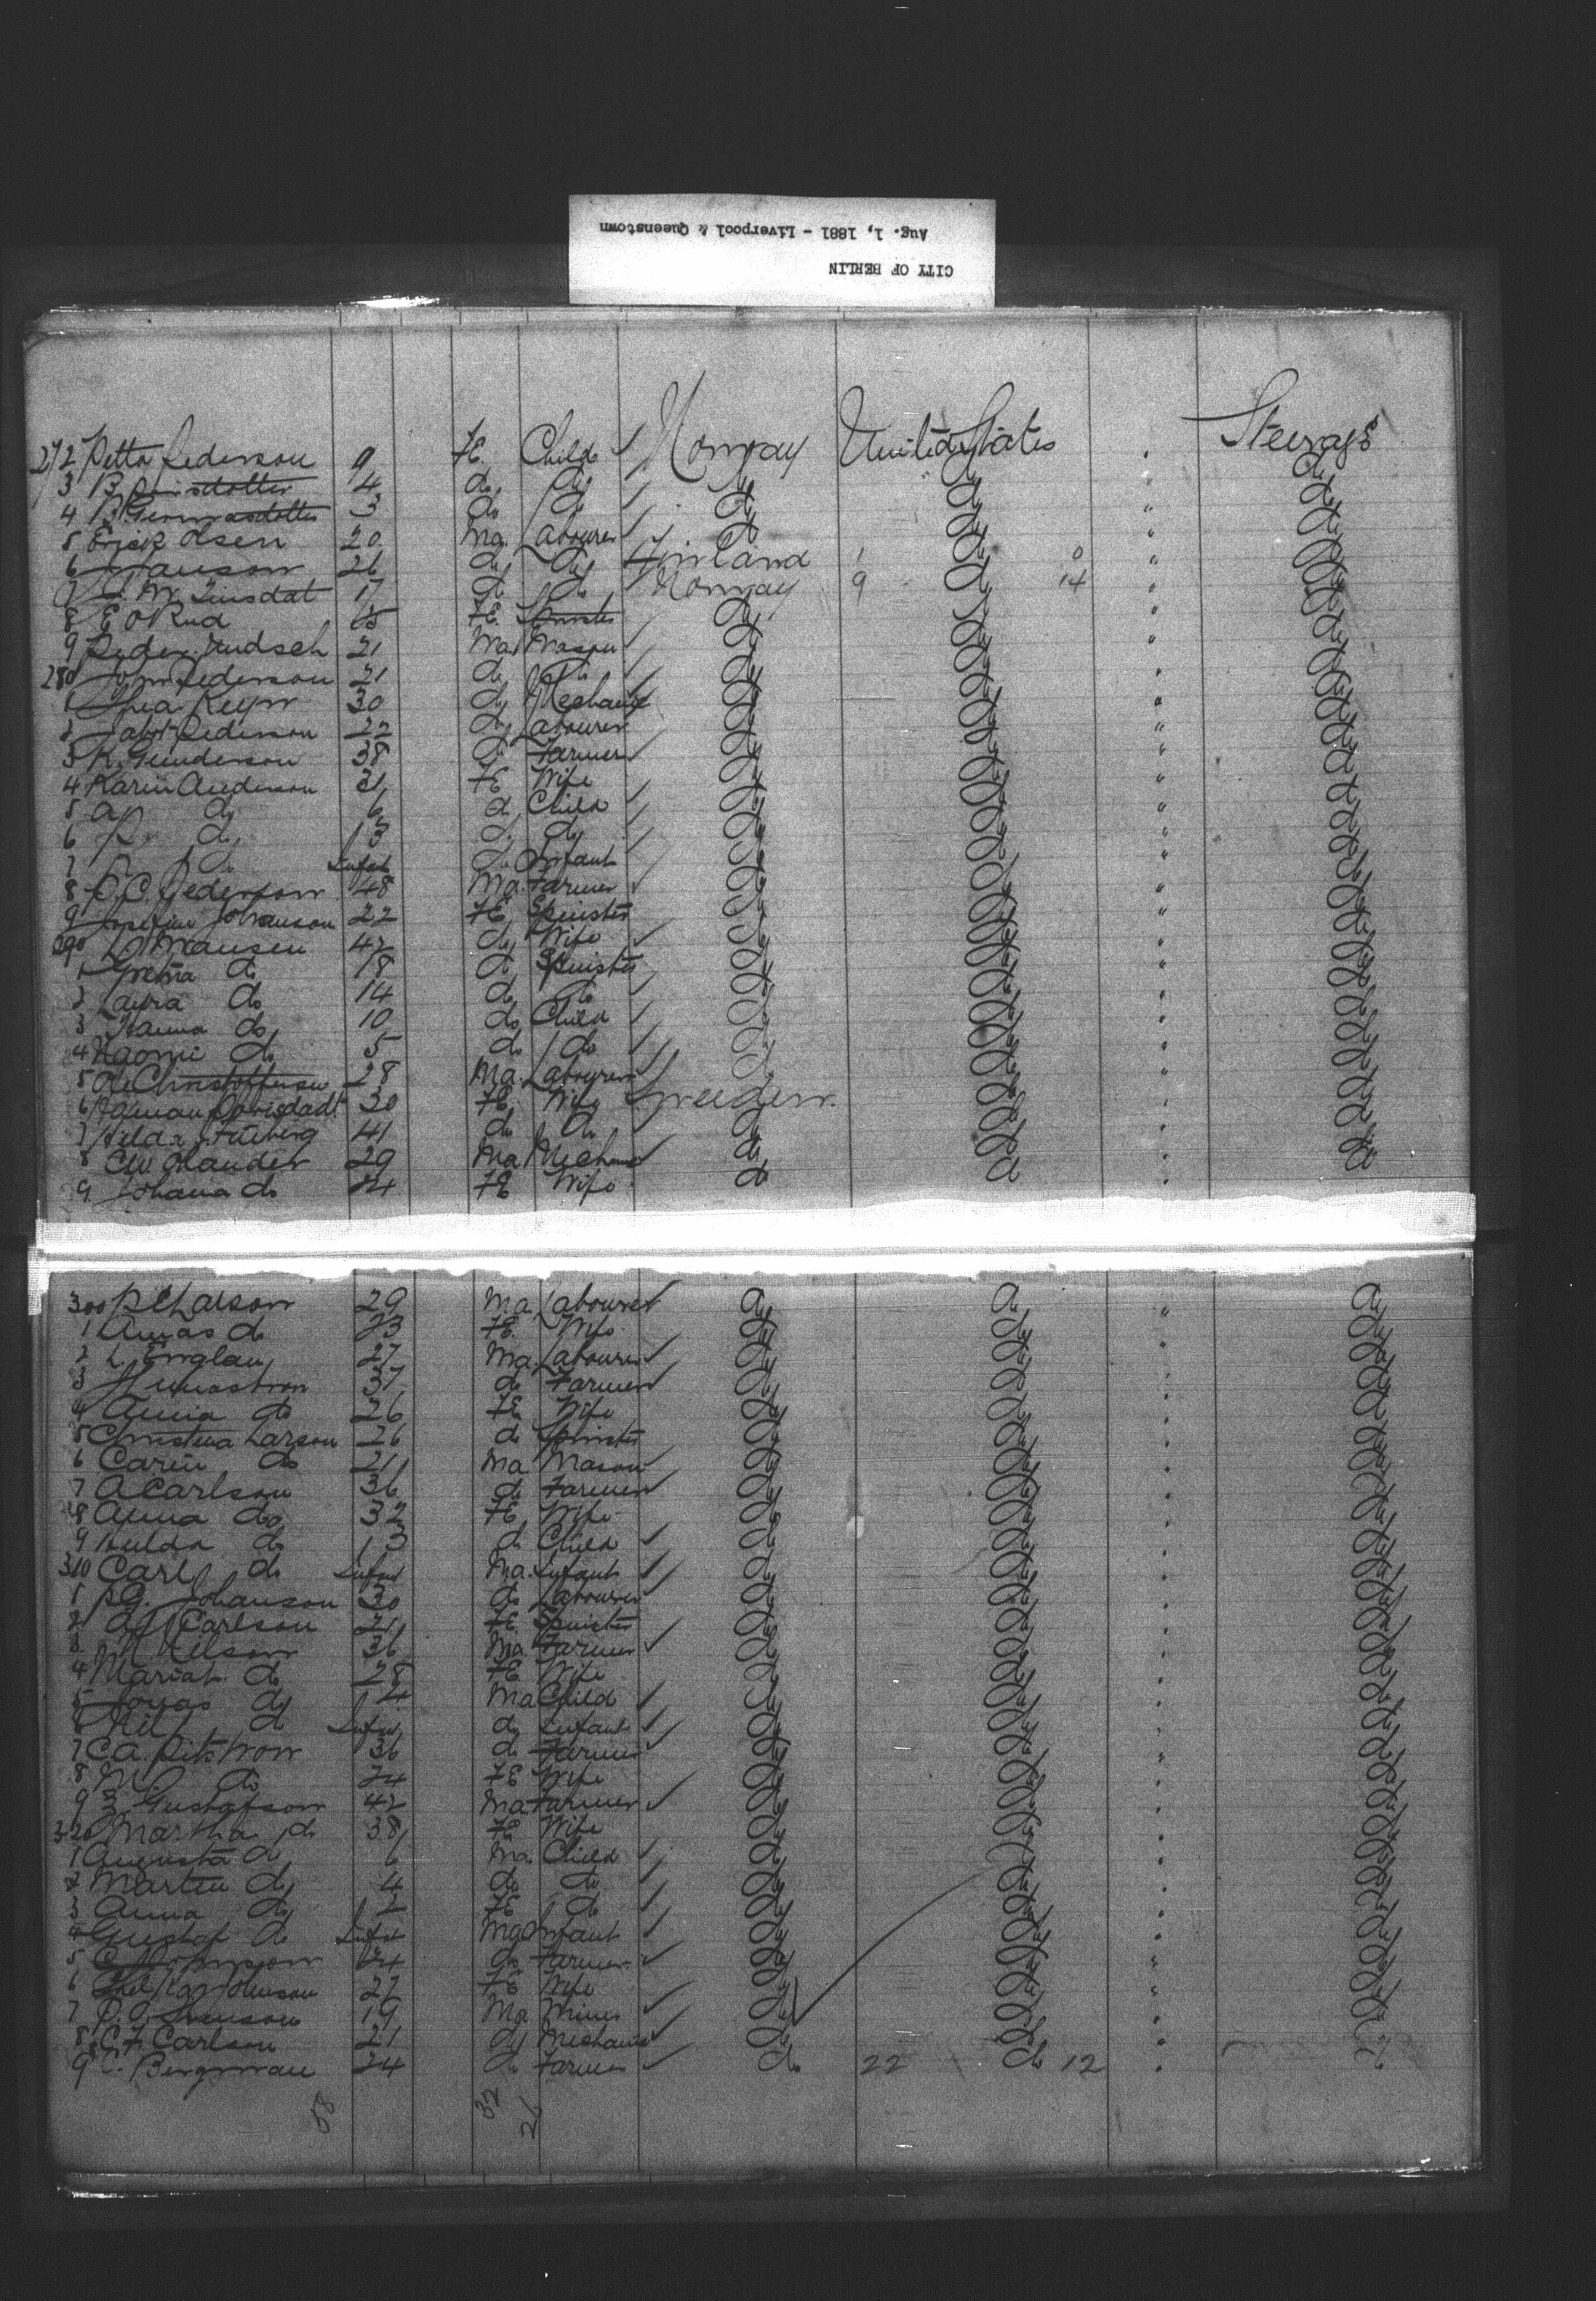 CITY OF BERLIN
Aug. 1, 1881 - Liverpool & Queenstown
272 Petta Pederson 9 FE Child Norway United States " Steerage
3 B 4 do do do do " do
4 B 3 do do do do " do
5 Erick Olsen 20 Ma Labourer do do " do
6 Janson 26 do do Finland 1 do 0 " do
7 17 do do Norway 9 do 14 " do
8 E O Rud 15 FE Spinster do do " do
9 Peder 21 Ma Mason do do " do
280 John Pederson 21 do do do do " do
1 Thea 30 do Mechanic do do " do
2 Pederson 22 do Labourer do do " do
3 K. Gunderson 38 do Farmer do do " do
4 Karin Anderson 31 FE Wife do do " do
5 A do 6 do Child do do " do
6 P do 3 do do do do " do
7 do Infant do Infant do do " do
8 P.C. Pederson 48 Ma Farmer do do " do
9 Josefine Johanson 22 FE Spinster do do " do
290 Hansen 42 do Wife do do " do
1 Gretha do 18 do Spinster do do " do
2 Laura do 14 do do do do " do
3 Hanna do 10 do Child do do " do
4 Naomi do 5 do do do do " do
5 Ole Christofferson 28 Ma Labourer do do " do
6 30 FE Wife Sweden do " do
7 Hilda 41 do do do do " do
8 C W Olander 29 Ma Mechanic do do " do
9 Johana do 24 FE Wife do do " do
300 Larson 29 Ma Labourer do do " do
1 do 23 FE Wife do do " do
2 L. Englan 27 Ma Labourer do do " do
3 37 do Farmer do do " do
4 Annia do 26 FE Wife do do " do
5 Christina Larson 26 do Spinster do do " do
6 Carin do 21 Ma Mason do do " do
7 A Carlson 36 do Farmer do do " do
8 Anna do 32 FE Wife do do " do
9 Hulda do 3 do Child do do " do
310 Carl do Infant Ma Infant do do " do
1 P G. Johanson 30 do Labourer do do " do
2 Carlson 21 FE Spinster do do " do
3 Nelson 36 Ma Farmer do do " do
4 Mariah do 28 FE Wife do do " do
5 Jonas do 4 Ma Child do do " do
6 Nils do Infant do Infant do do " do
7 C A. 36 do Farmer do do " do
8 do 24 FE Wife do do " do
9 Gustafson 42 Ma Farmer do do " do
320 Martha do 38 FE Wife do do " do
1 Augusta do 6 Ma Child do do " do
2 Martin do 4 do do do do " do
3 Anna do 2 FE do do do " do
4 Gustaf do Infant Ma Infant do do " do
5 24 do Farmer do do " do
6 Johnson 27 FE Wife do do " do
7 P. O. Swenson 19 Ma Miner do do " do
8 C F Carlson 21 do Mechanic do do " do
9 C. Bergman 24 do Farmer do 22 do 12 " do
58 32 26